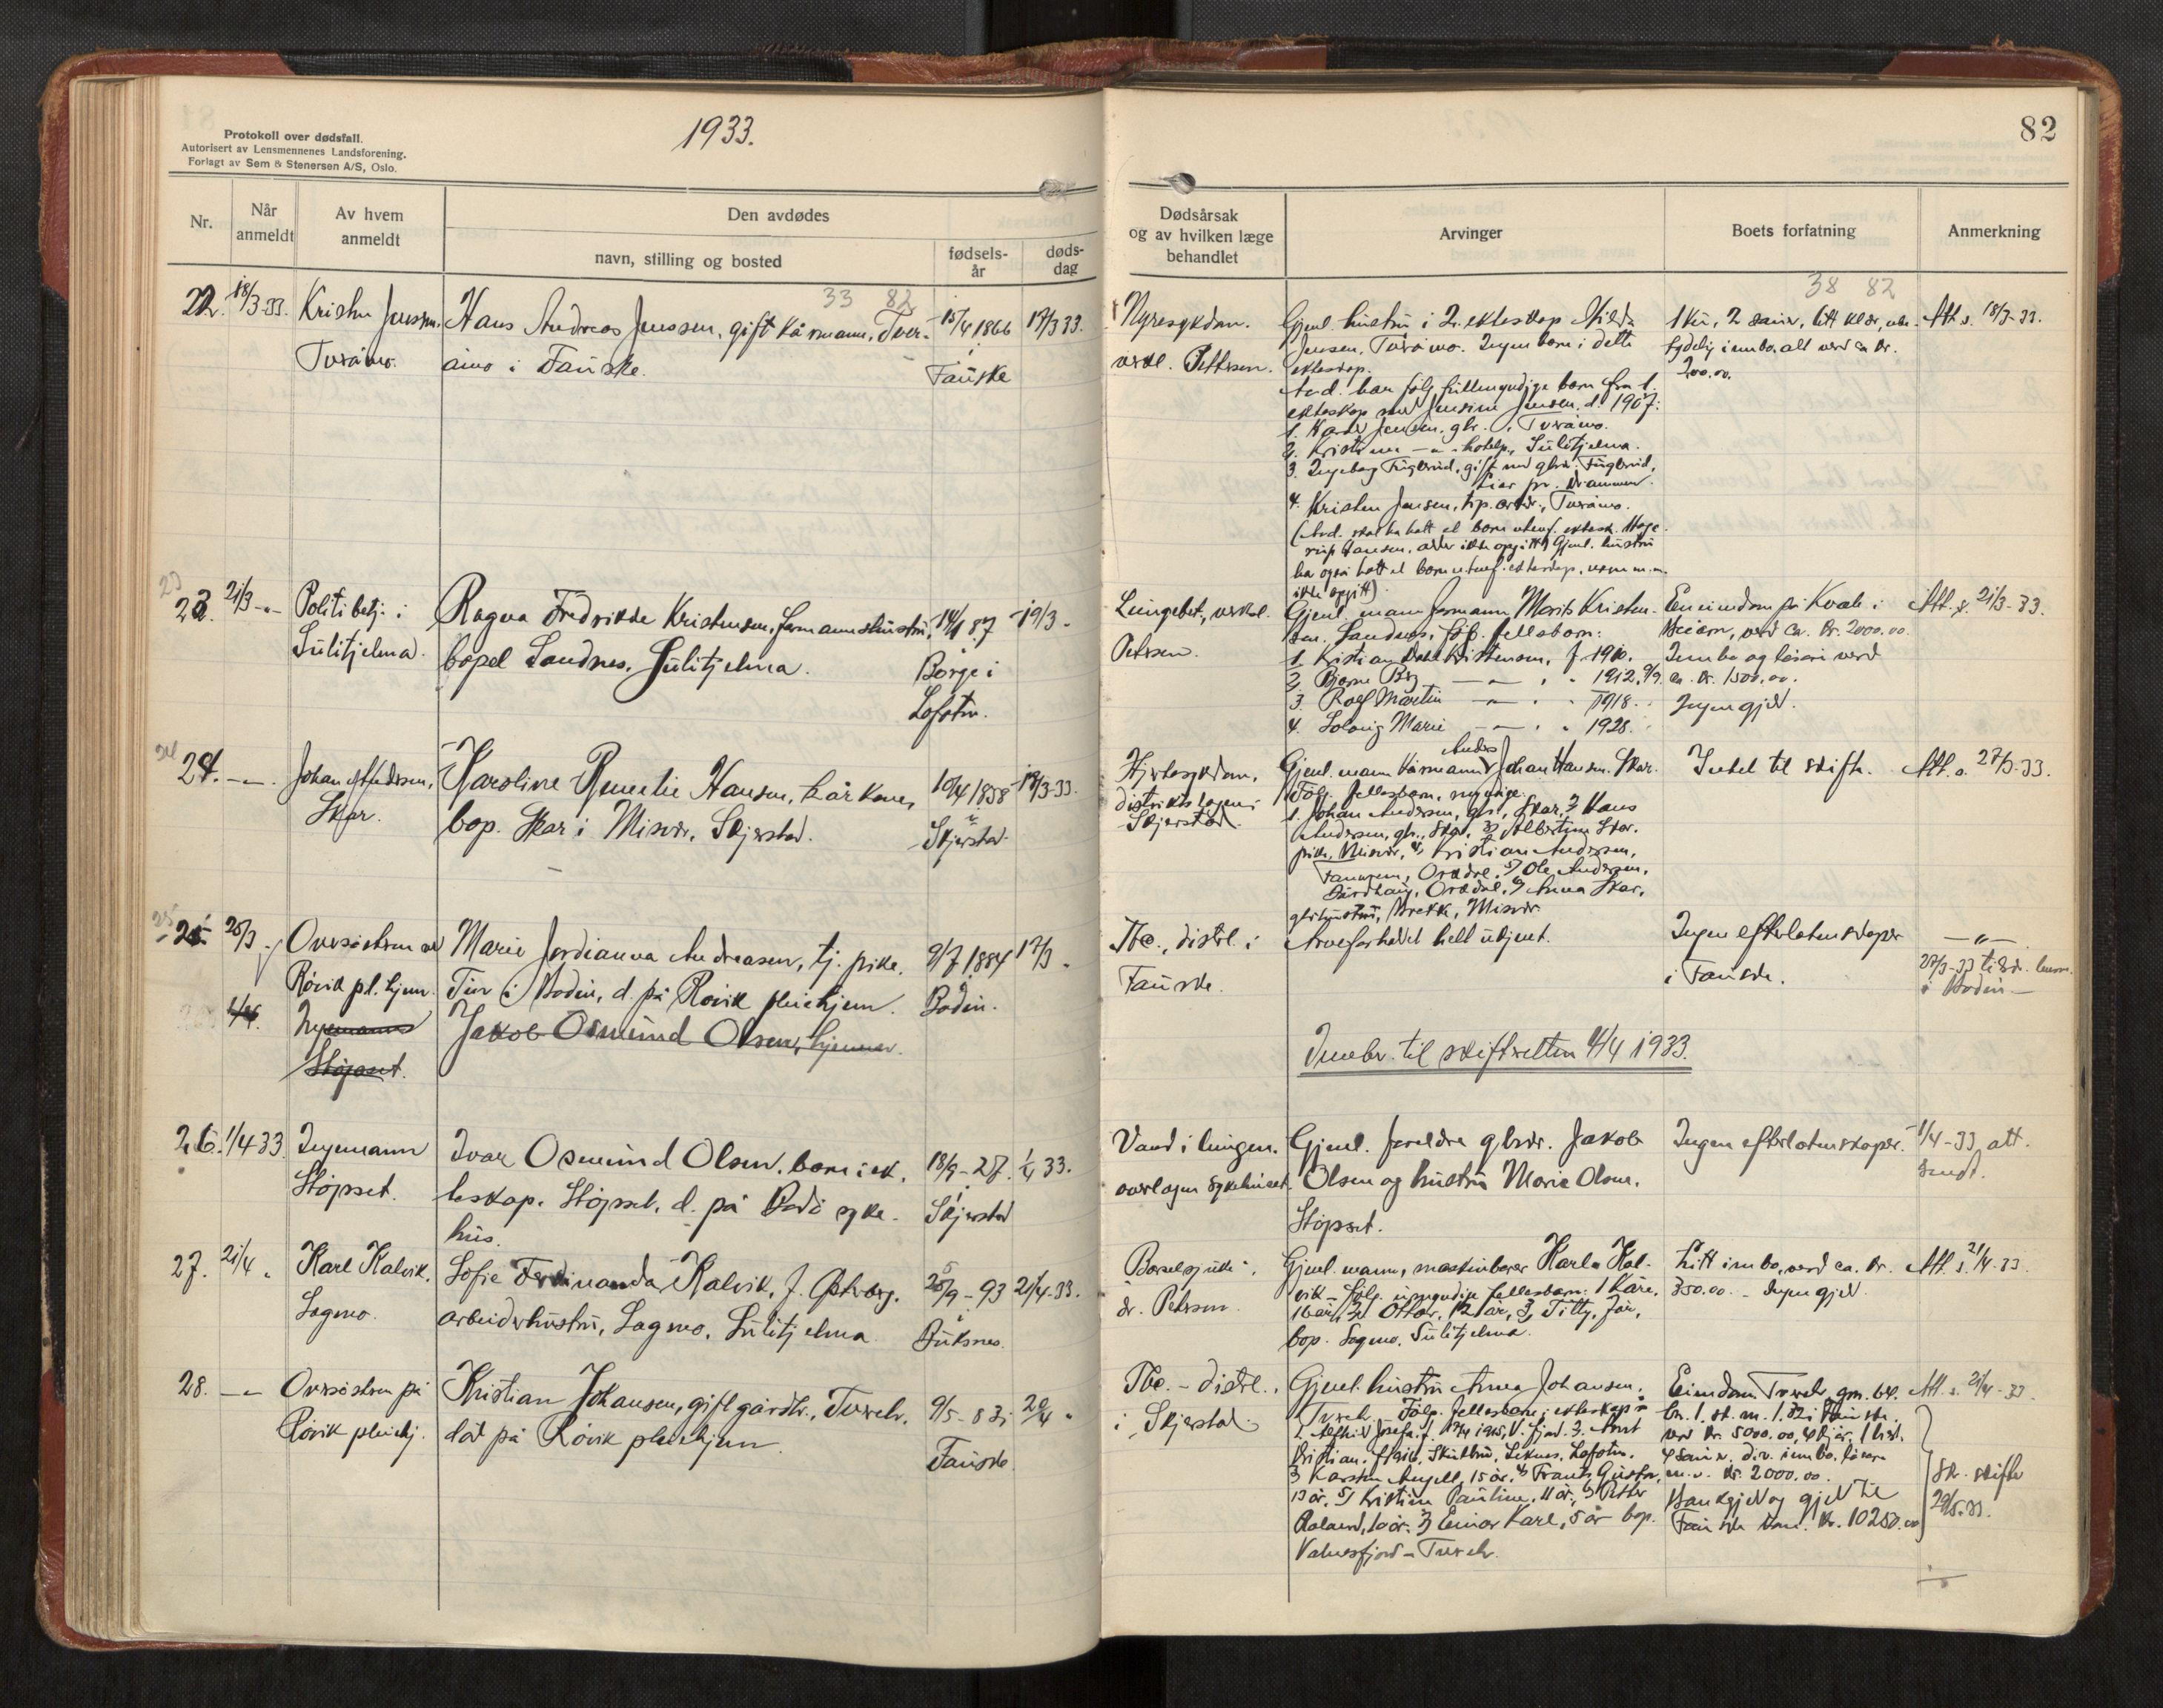 Protokoll over dødsfall.
Autorisert av Lensmennenes Landsforening.
Forlagt av Sem & Stenersen A/S, Oslo.
1933.
82
Nr.
Når anmeldt
Av hvem anmeldt
Den avdødes
navn, stilling og bosted
fødsels-år
døds-dag
Dødsårsak og av hvilken læge behandlet
Arvinger
Boets forfatning
Anmerkning
33 82
38 82
22. 18/3-33. Kristen Jensen,
Tveråmo.
Hans Andreas Jenssen, gift kårmann, Tver-
åmo i Fauske.
15/4 1866
i
Fauske
17/3 33.
Nyresykdom.
Pettersen.
Gjenl. hustru i 2. ekteskap Hilda
Jensen, Tveråmo. Ingen barn i dette
ekteskap.
Avd. har følg. fullmyndige barn fra 1.
ekteskap med Jensine Jensen, d. 1907:
1. Jensen, gbr., Tveråmo.
2. Sulitjelma.
3. Ingeborg Fuglerud, gift med gbr. Fuglerud,
Lier pr. Drammen.
4. Kristen Jensen, Tveråmo.
(Avd. skal ha hatt et barn utenf. ektesk.
Hansen, alder ikke opgitt) Gjenl. hustru
har også hatt et barn utenf. ekteskap, navn m.m.
ikke opgitt).
1 ku, 2 sauer, litt klær, ube-
tydelig innbo, alt verd ca kr.
200.00.
Att. s. 18/3-33.
23
23. 21/3 -"- Politibetj. i
Sulitjelma.
Ragna Fredrikke Kristensen, formannshustru,
bopel Sandnes, Sulitjelma.
14/1 87
Borge i
Lofoten.
19/3 -
Lungebet.,
Petersen.
Gjenl. mann formann Morits Kristen-
sen, Sandnes, følg. fellesbarn:
1. Kristian Kristensen, f. 1910.
2. Bjarne -"- 1912.
3. Rolf Martin -"- 1918.
4. Solveig Marie -"- 1928.
Eiendom på Kvæl i
Beiarn, verd ca. kr. 2000.00.
Innbo og løsøre verd
ca. kr. 1500.00.
Ingen gjeld.
Att. s. 21/3-33.
24
24. -"-. Johan Andersen,
Skar.
Karoline Hansen, kårkone,
bop. Skar i Misvær, Skjerstad.
10/4 1858
Skjerstad.
18/3-33.
Hjertesykdom,
distriktslægen i
Skjerstad.
Gjenl. mann kårmann Anders Johan Hansen, Skar.
Følg. fellesbarn, myndige:
1. Johan Andersen, gbr., Skar, 2) Hans
Andersen, gbr., Skar, 3) Albertine Skar,
pike, Misvær, 4) Kristian Andersen,
Orkdal, 5) Ole Andersen,
Orkdal, 6) Anna Skar,
gbrhustru, Brekk, Misvær.
Intet til skifte.
Att. s. 27/3-33.
25
25. 25/3 Oversøsteren ved
Røvik pl. hjem.
Marie Jordianna Andreasen, tj. pike,
Tuv i Bodin, d. på Røvik pleiehjem.
9/7 1884
Bodin.
17/3 -
Tbc., distrl. i
Fauske.
Arveforholdet helt ukjent.
Ingen efterlatenskaper
i Fauske.
-"-
27/3-33 til
i Bodin -
1/4. Ingemann
Støpset.
Jakob Osmund Olsen, hjemme.
Innber. til skifteretten 4/4 1933.
26. 1/4 33. Ingemann
Støpset.
Ivar Osmund Olsen, barn i ek-
teskap, Støpset, d. på Bodø syke-
hus.
18/9-27.
Skjerstad
1/4 33.
Vand i lungen.
overlægen sykehuset.
Gjenl. foreldre gbr. Jakob
Olsen og hustru Marie Olsen,
Støpset.
Ingen efterlatenskaper.
1/4-33, att.
sendt.
27. 21/4 - Karl Kalvik,
Lagmo.
Sofie Ferdinanda Kalvik, f. Østberg,
arbeiderhustru, Lagmo, Sulitjelma.
25/9-93
Buksnes.
21/4-33.
Barselsyke,
dr. Petersen.
Gjenl. mann, maskinborer Karl Kal-
vik - følg. umyndige fellesbarn: 1 Kåre,
16 år, 2) Ottar, 12 år, 3)
bop. Lagmo, Sulitjelma.
Litt innbo, verd ca. kr.
350.00. - Ingen gjeld.
Att. s. 21/4-33.
28. -"- Oversøsteren på
Røvik pleiehj.
Kristian Johansen, gift gårdbr., Tverelv,
død på Røvik pleiehjem.
9/5-83 i
Fauske.
20/4 -
Tbc. - distrl.
i Skjerstad.
Gjenl. hustru Anna Johansen,
Tverelv. Følg. fellesbarn i ekteskap:
Lofoten.
3) Karsten 15 år, 4) Frants Gustav,
13 år, 5) Kristine Pauline, 11 år, 6) Petter
Roland, 10 år, 7) Einar Karl, 5 år bop.
Valnesfjord - Tverelv.
Eiendom Tverelv,
br. 1, i Fauske.
verd kr. 5000.00, 4 kjør, 1 hest,
4 sauer, div. innbo, løsøre
m.v. kr. 2000.00.
Bankgjeld og gjeld til
Fauske kom. kr. 10250.00
Att. s. 21/4-33.
skifte
29/5-33.